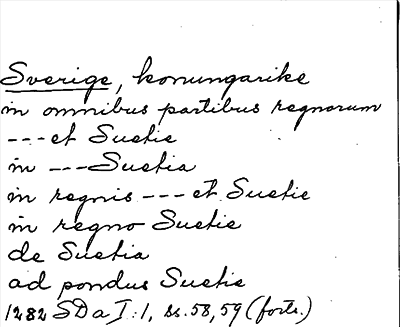 Sverige, konungarike
in omnibus partibus regnorum
--- et Suetie
in --- Suetia
in regnis --- et Suetie
in regno Suetie
de Suetia
ad pondus Suetie
1282 SD a I:1, ss. 58, 59 (forts.)